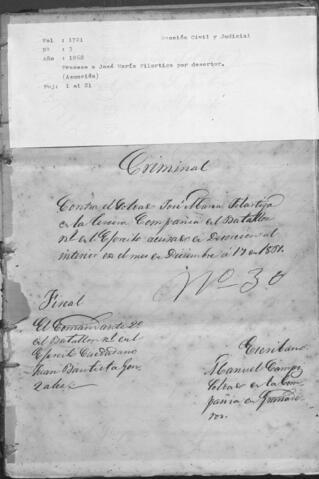 Vol : 1721 Sección Civil y Judicial
Nº : 3
Año : 1852
Proceso a José María Filartiga por desertor.
(Asunción)
Foj: 1 al 21
Criminal
Contra el Soldao José Maria Filartiga
en la tercera Compañia el Batallon
nº en el Ejercito acusado de Desercion al
interior en el mes en Diciembre a 17 en 1851.
Nº 30
Fiscal
El Comandante 2º
el Batallon nº en el
Ejercito Ciudadano
Juan Bautista Gon
zales
Escribano
Manuel Campo
Soldao en la Com
pañia en Granade
ros.